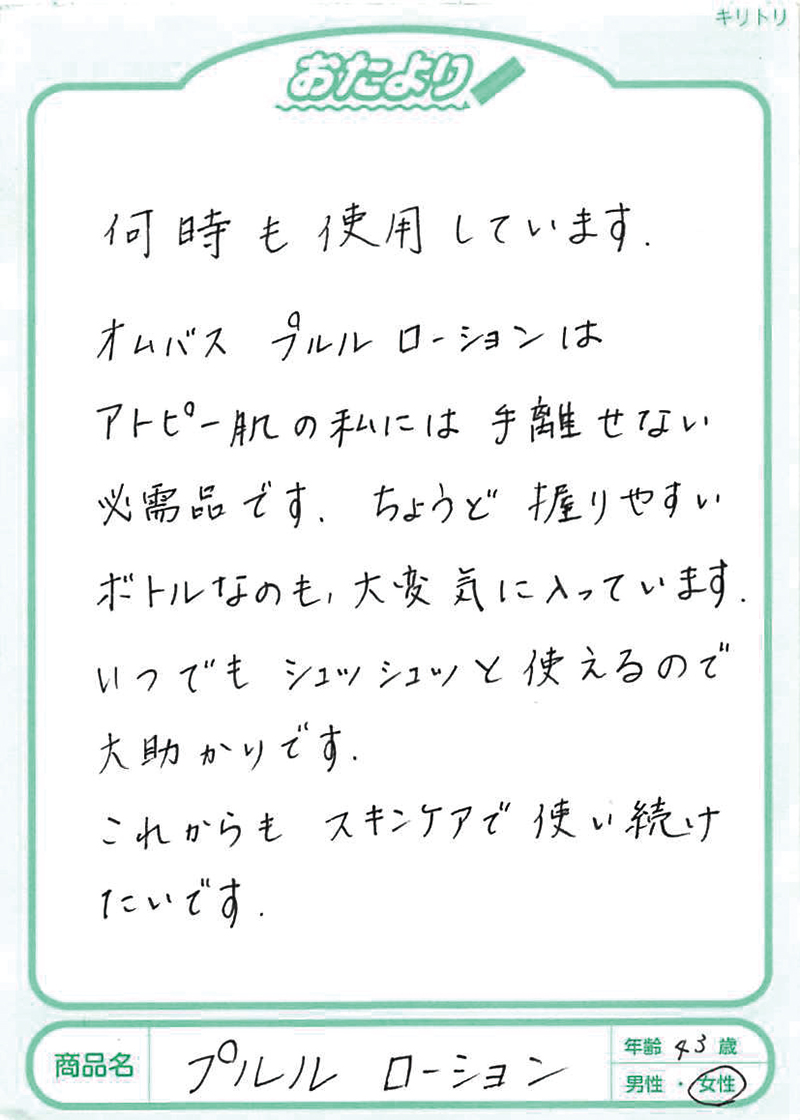 キリトリ
おたより
何時も使用しています.
オムバス プルル ローションは
アトピー肌の私には 手離せない
必需品です. ちょうど 握りやすい
ボトルなのも, 大変気に入っています.
いつでも シュッシュッと使えるので
大助かりです.
これからも スキンケアで使い続け
たいです.
商品名 プルル ローション
年齢 43 歳
男性 ・ 女性